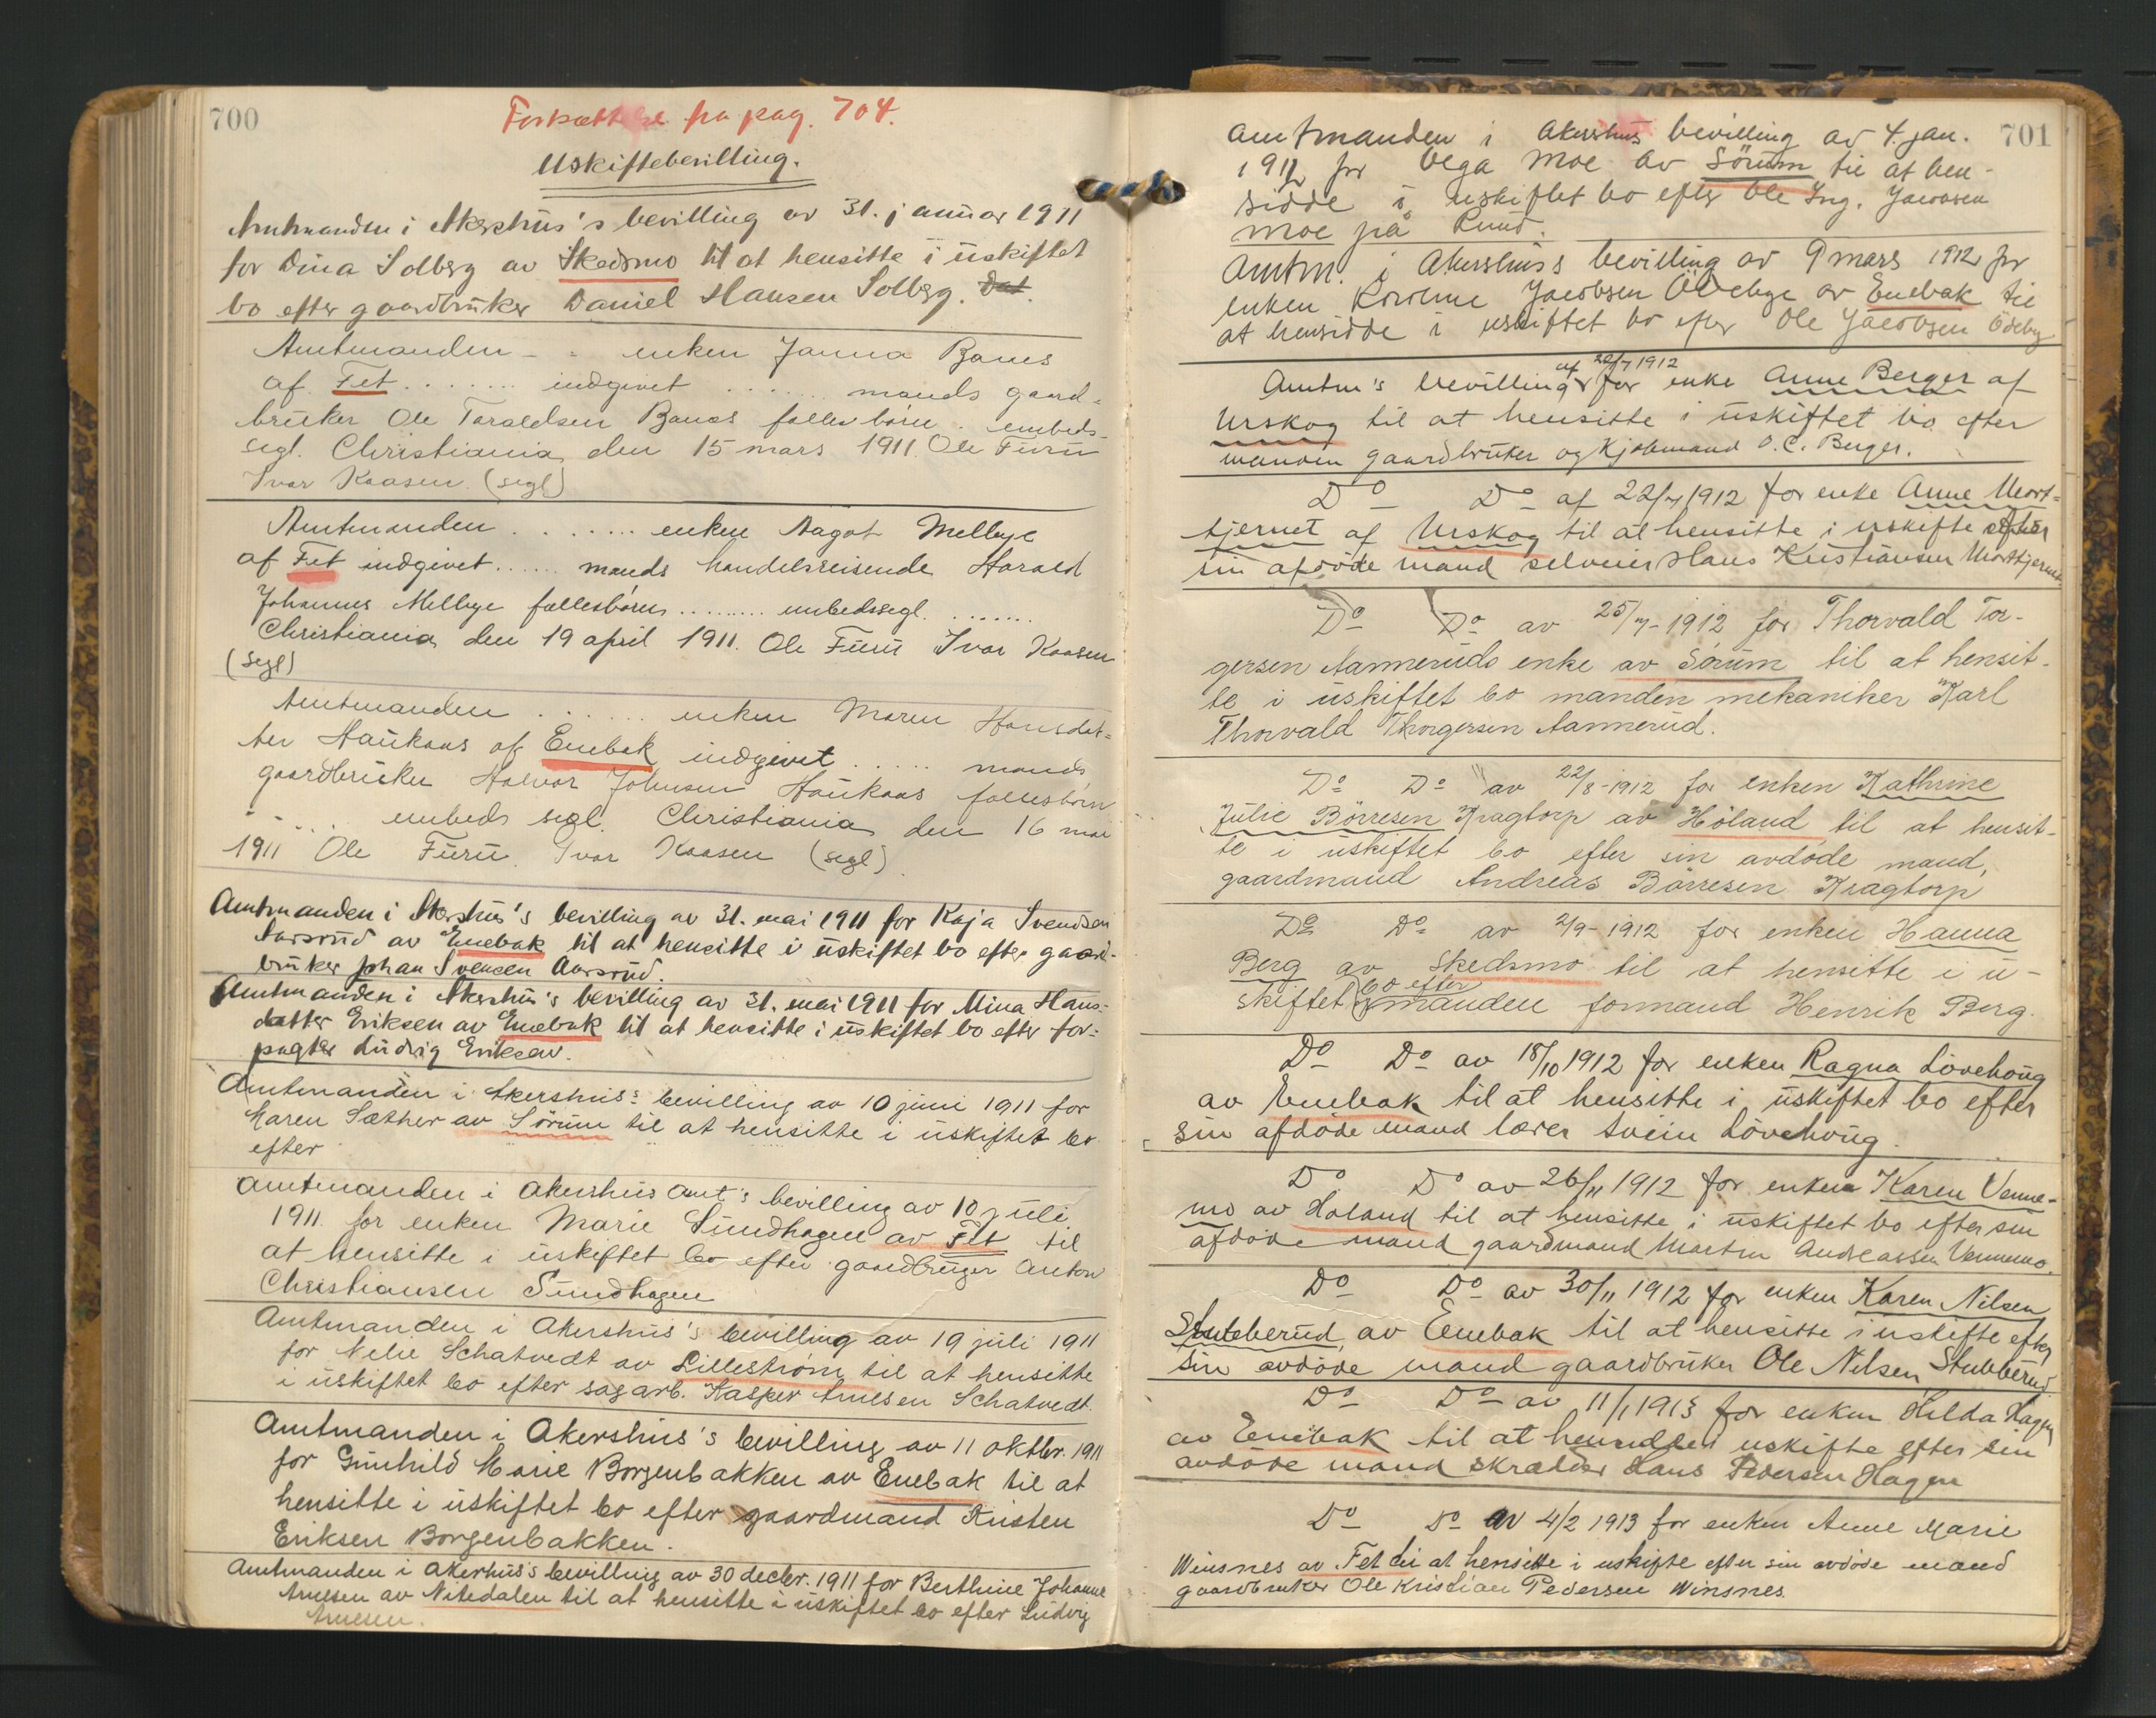 700
Fortsættelse fra pag. 704.
Uskiftebevilling.
Amtmanden i Akershus's bevilling av 31. januar 1911
for Dina Solberg av Skedsmo til at hensitte i uskiftet
bo efter gaardbruker Daniel Hansen Solberg. Dat.
Amtmanden - - enken Janna
af Fet ....... indgivet ....... mands gaard-
bruker Ole Taraldsen fællesbørn . embeds-
segl. Christiania den 15 mars 1911. Ole Furu
Ivar Kaasen. (segl)
Amtmanden ....... enken Aagot Mellbye
af Fet indgivet ...... mands handelsreisende Harald
Johannes Mellbye fællesbørn ........ embedssegl. .......
Christiania den 19 april 1911. Ole Furu Ivar Kaasen
(segl)
Amtmanden ....... enken Maren Hansdat-
ter Haukaas af Enebak indgivet ..... mands
gaardbruker Halvor Johnsen Haukaas fællesbørn
..... embeds segl. Christiania den 16 mai
1911 Ole Furu. Ivar Kaasen (segl)
Amtmanden i Akershus's bevilling av 31. mai 1911 for Kaja Svendsen
Aarsrud av Enebak til at hensitte i uskiftet bo efter gaard-
bruker Johan Svensen Aarsrud.
Amtmanden i Akershus's bevilling av 31. mai 1911 for Mina Hans-
datter Eriksen av Enebak til at hensitte i uskiftet bo efter for-
pagter Ludvig Eriksen.
Amtmanden i Akershus's bevilling av 10 juni 1911 for
Maren Sæther av Sørum til at hensitte i uskiftet bo
efter
Amtmanden i Akershus Amt's bevilling av 10 juli
1911. for enken Marie Sundhagen av Fet til
at hensitte i uskiftet bo efter gaardbruger Anton
Christiansen Sundhagen
Amtmanden i Akershus's bevilling av 19 juli 1911
for Nelie Schatvedt av Lillestrøm til at hensitte
i uskiftet bo efter sagarb. Kasper Arnesen Schatvedt.
Amtmanden i Akershus's bevilling av 11 oktbr. 1911
for Gunhild Marie Borgenbakken av Enebak til at
hensitte i uskiftet bo efter gaardmand Kristen
Eriksen Borgenbakken.
Amtmanden i Akerhus's bevilling av 30 decbr. 1911 for Berthine Johanne
Arnesen av Nitedalen til at hensitte i uskiftet bo efter Ludvig
Arnesen.
701
Amtmanden i Akershus bevilling av 4. jan.
1912 for Olga Moe av Sörum til at hen-
sidde i uskiftet bo efter Ole Ing. Jacobsen
Moe på Rund.
Amtm. i Akershus's bevilling av 9 mars 1912 for
enken Jacobsen Ödebye av Enebak til
at hensidde i uskiftet bo efter Ole Jacobsen Ödeby
af 22/7 1912
Amtm's bevilling for enke Anne Berger af
Urskog til at hensitte i uskiftet bo efter
manden gaardbruker og Kjøbmand O. C. Berger.
Do Do af 22/7 1912 for enke Anne Mort-
tjernet af Urskog til at hensitte i uskifte efter
sin afdöde mand selveier Hans Kristiansen Morttjernet.
Do Do av 25/7-1912 for Thorvald Tor-
gersen Aanneruds enke av Sørum til at hensit-
te i uskiftet bo manden mekaniker Karl
Thorvald Thorgersen Aannerud.
Do Do av 22/8-1912 for enken Kathrine
Julie Börresen Kragtorp av Höland til at hensit-
te i uskiftet bo efter sin avdøde mand,
gaardmand Andreas Börresen Kragtorp
Do Do av 2/9-1912 for enken Hanna
Berg av Skedsmo til at hensitte i u-
bo efter
skiftet manden formand Henrik Berg.
Do Do av 18/10 1912 for enken Ragna Lövehoug
av Enebak til at hensitte i uskiftet bo efter
sin afdöde mand lærer Svein Lövehoug.
Do Do av 26/11 1912 for enken Karen Venne-
mo av Høland til at hensitte i uskiftet bo efter sin
afdöde mand gaardmand Martin Andreassen Vennemo.
Do Do av 30/11 1912 for enken Karen Nilsen
Stubberud av Enebak til at hensitte i uskifte efter
sin avdöde mand gaardbruker Ole Nilsen Stubberud.
Do Do av 11/1 1913 for enken Hilda Hagen
av Enebak til at hensidde i uskifte efter sin
avdöde mand skrædder Hans Pedersen Hagen
Do Do av 4/2 1913 for enken Anne Marie
Winsnes av Fet til at hensitte i uskifte efter sin avdöde mand
gaardbruker Ole Kristian Pedersen Winsnes.